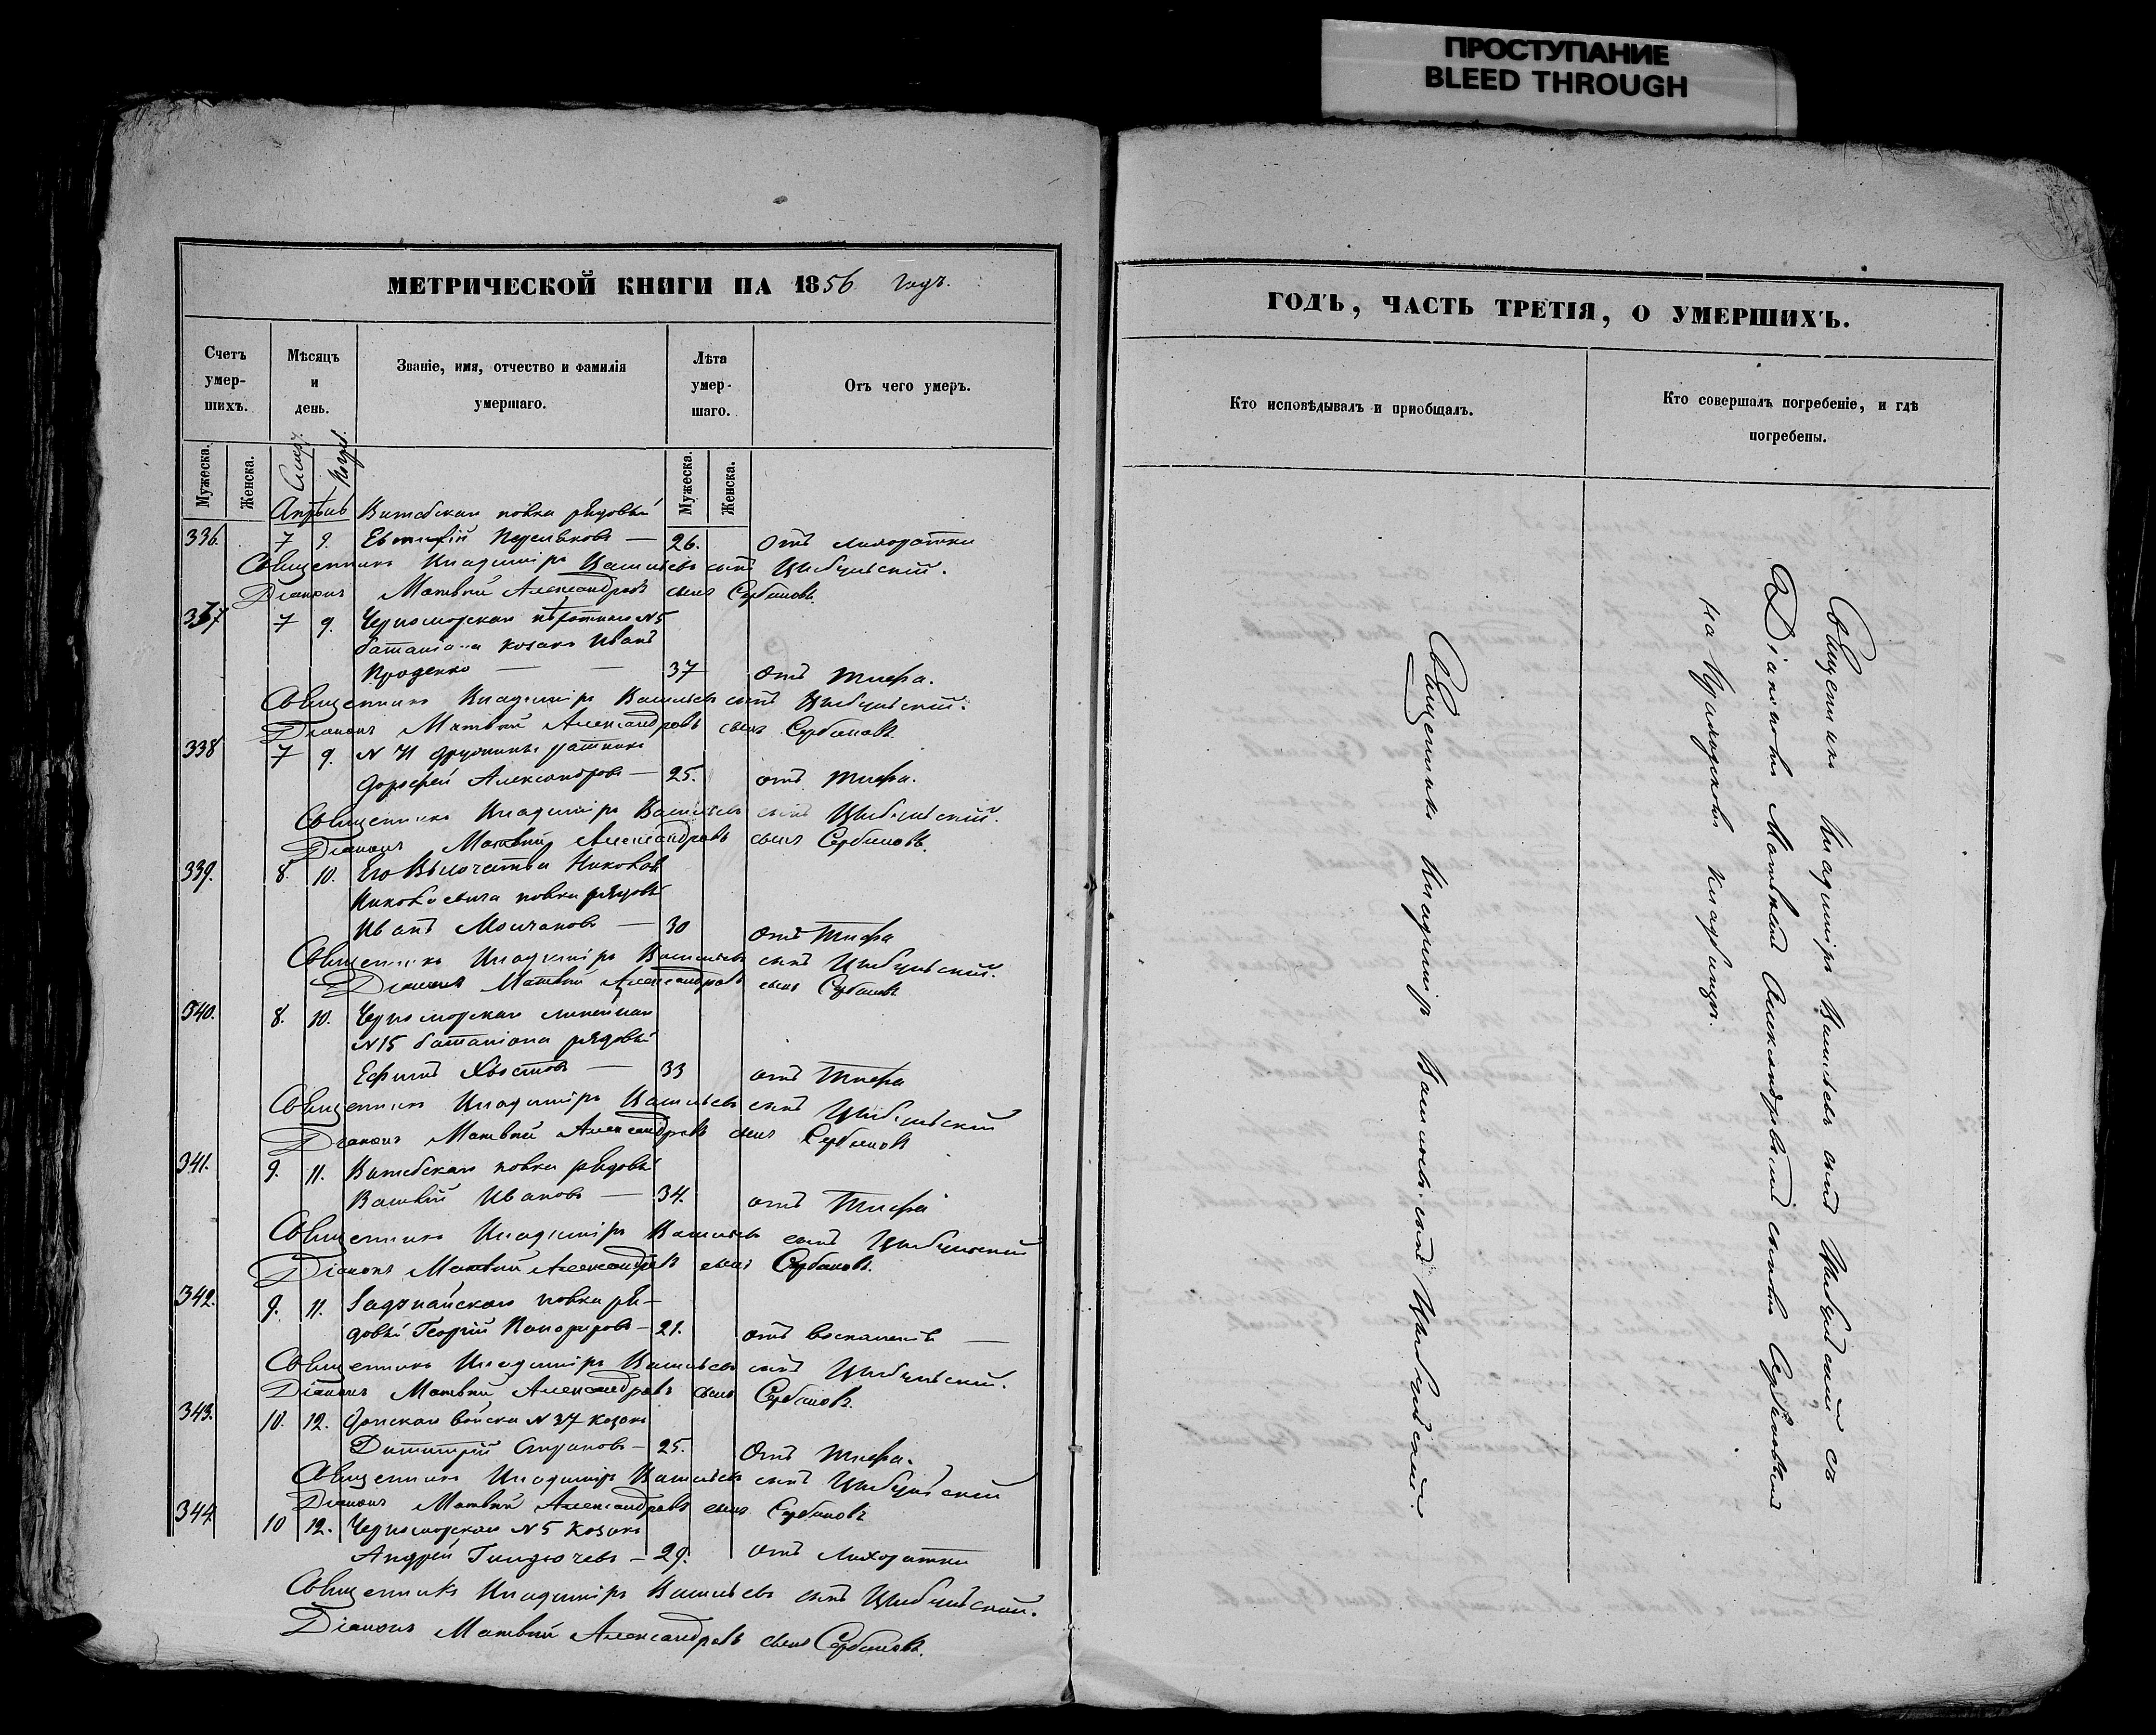 ПРОСТУПАНИЕ
BLEED THROUGH
МЕТРИЧЕСКОЙ КНИГИ НА 1856 годъ.
Счетъ умер-шихъ.
Мѣсяцъ и день.
Званіе, имя, отчество и фамилія умершаго.
Лѣта умер-шаго.
Отъ чего умеръ.
Мужеска.
Женска.
Смер.
Погреб.
Мужеска.
Женска.
Апрѣль Витебскаго полка рядовый
336. 7 9. Евтихій — 26. Отъ лихоратки
Священникъ Владиміръ Васильевъ сынъ Цыбульскій.
Діаконъ Матвѣй Александровъ сынъ Сербиновъ.
337 7 9. Черноморскаго №5
баталіона козакъ Иванъ
Проценко — — 37 Отъ тифа.
Священникъ Владиміръ Васильевъ сынъ Цыбульскій.
Діаконъ Матвѣй Александровъ сынъ Сербиновъ
338 7 9. № 71 дружины ратникъ
Дорофей Александровъ — 25. отъ тифа.
Священникъ Владиміръ Васильевъ сынъ Цыбульскій.
Діаконъ Матвѣй Александровъ сынъ Сербиновъ.
339. 8. 10. Его Высочества Николая
Николаевича полка рядовый
Иванъ Молчановъ — 30 отъ тифа
Священникъ Владиміръ Васильевъ сынъ Цыбульскій.
Діаконъ Матвѣй Александровъ сынъ Сербиновъ
340. 8. 10. Черноморскаго линейнаго
№15 баталіона рядовый
Ефимъ Хвостовъ — 33 отъ тифа
Священникъ Владиміръ Васильевъ сынъ Цыбульскій
Діаконъ Матвѣй Александровъ сынъ Сербиновъ
341. 9. 11. Витебскаго полка рядовый
Василій Ивановъ — 34. отъ тифа
Священникъ Владиміръ Васильевъ сынъ Цыбульскій
Діаконъ Матвѣй Александровъ сынъ Сербиновъ.
342. 9. 11. Задунайскаго полка ря-
довый Георгій — 21. отъ воспаленія —
Священникъ Владиміръ Васильевъ сынъ Цыбульскій.
Діаконъ Матвѣй Александровъ сынъ Сербиновъ.
343. 10. 12. Донскаго войска № 37 козакъ
Дмитрій — 25. Отъ тифа.
Священникъ Владиміръ Васильевъ сынъ Цыбульскій
Діаконъ Матвѣй Александровъ сынъ Сербиновъ
344 10 12. Черноморскаго №5 козакъ
Андрей — 29. отъ лихоратки
Священникъ Владиміръ Васильевъ сынъ Цыбульскій.
Діаконъ Матвѣй Александровъ сынъ Сербиновъ.
ГОДЪ, ЧАСТЬ ТРЕТІЯ, О УМЕРШИХЪ.
Кто исповѣдывалъ и пріобщалъ.
Кто совершалъ погребеніе, и гдѣ погребены.
Священникъ Владиміръ Васильевъ сынъ Цыбульскій.
Священникъ Владиміръ Васильевъ сынъ Цыбульскій съ
Діакономъ Матвѣемъ Александровымъ сыномъ Сербиновымъ
на кладбищѣ.